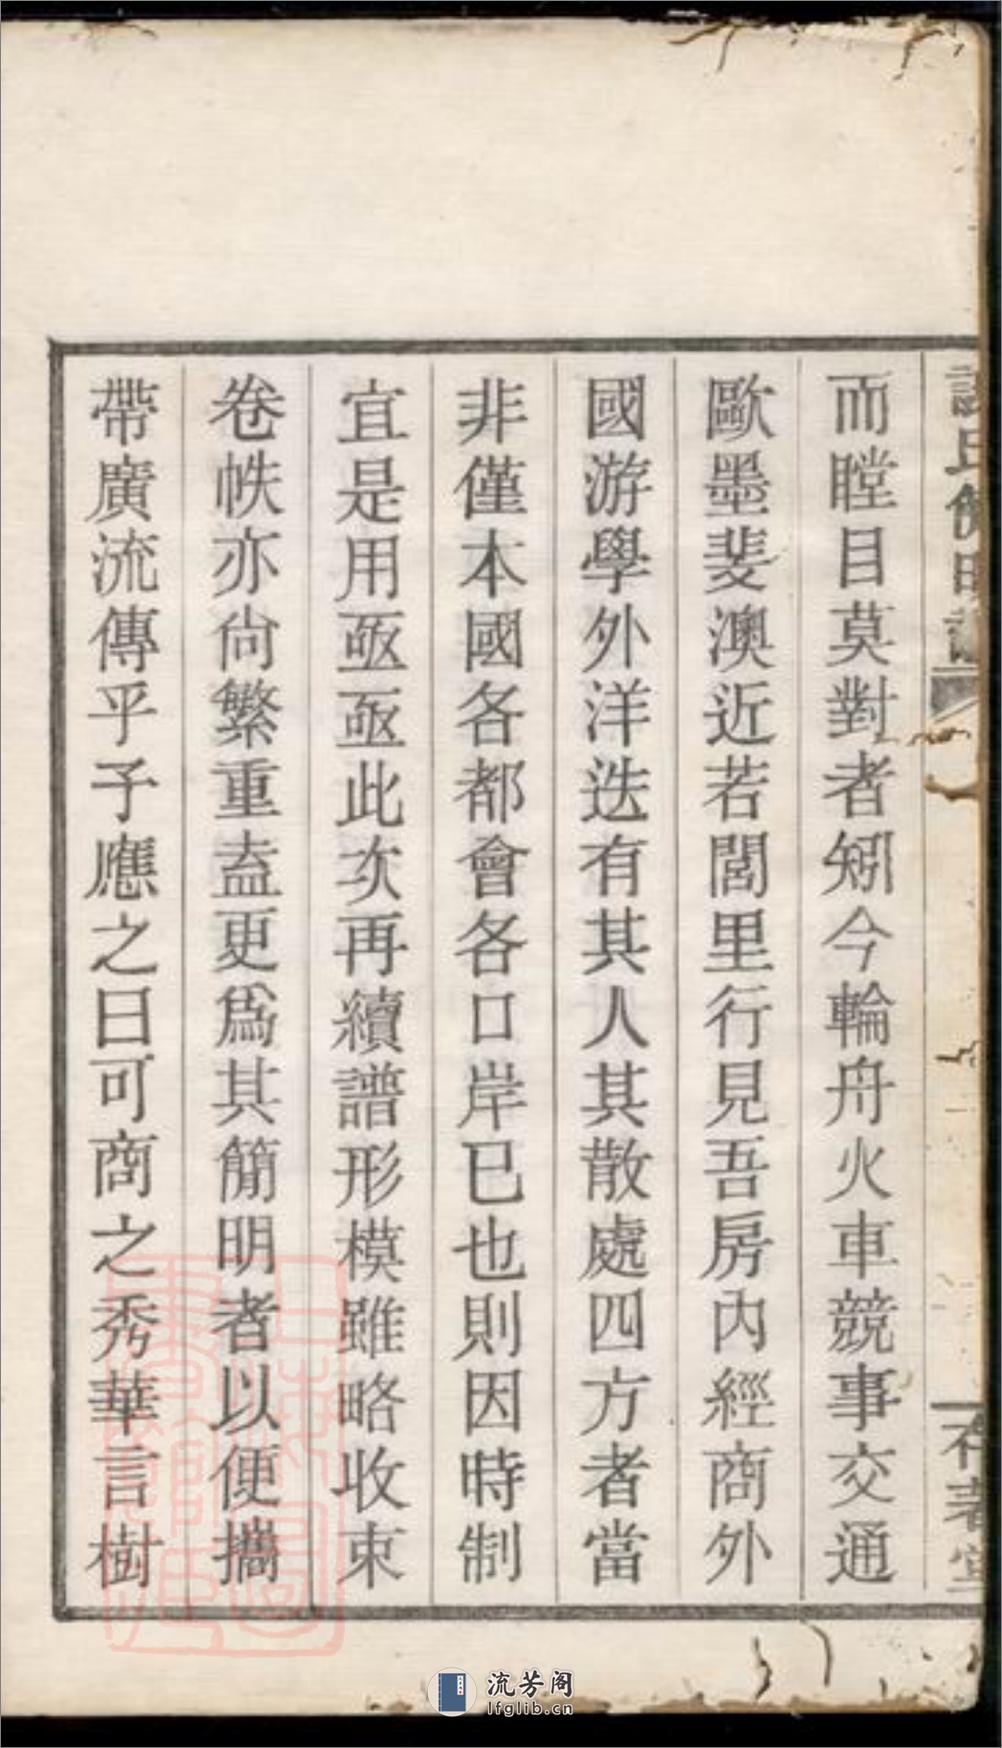 而瞠目莫對者矧今輪舟火車競事交通
歐墨斐澳近若閭里行見吾房內經商外
國游學外洋迭有其人其散處四方者當
非僅本國各都會各口岸已也則因時制
宜是用亟亟此次再續譜形模雖略收束
卷帙亦尙繁重盍更爲其簡明者以便攜
帶廣流傳乎予應之曰可商之秀華言樹
流芳阁
lfglib.cn